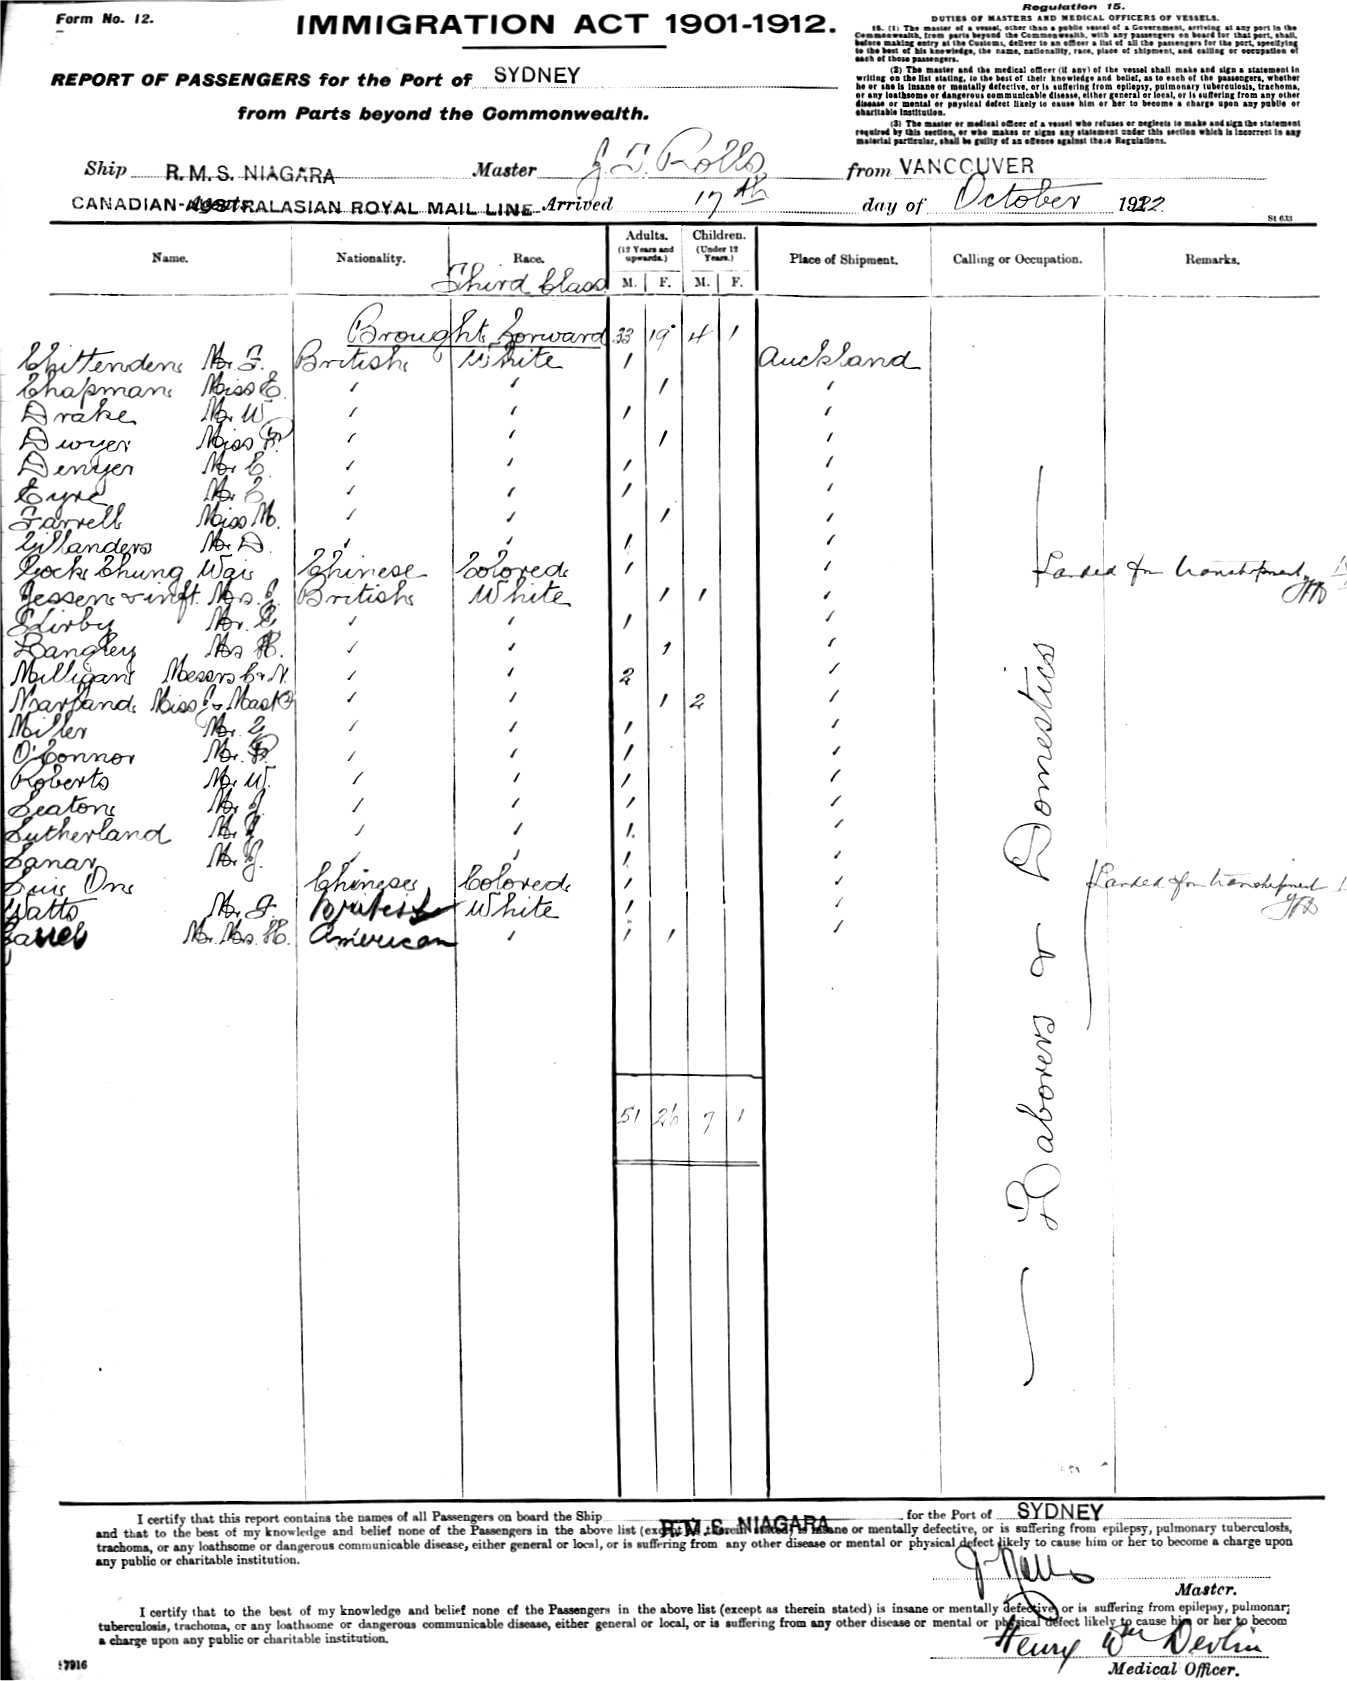 Form No. 12.
IMMIGRATION ACT 1901-1912.
REPORT OF PASSENGERS for the Port of SYDNEY
from Parts beyond the Commonwealth.
Regulation 15.
DUTIES OF MASTERS AND MEDICAL OFFICERS OF VESSELS.
15. (1) The master of a vessel, other than a public vessel of a Government, arriving at any port in the
Commonwealth, from parts beyond the Commonwealth, with any passengers on board for that port, shall,
before making entry at the Customs, deliver to an officer a list of all the passengers for the port, specifying
to the best of his knowledge, the name, nationality, race, place of shipment, and calling or occupation of
each of those passengers.
(2) The master and the medical officer (if any) of the vessel shall make and sign a statement in
writing on the list stating, to the best of their knowledge and belief, as to each of the passengers, whether
he or she is insane or mentally defective, or is suffering from epilepsy, pulmonary tuberculosis, trachoma,
or any loathsome or dangerous communicable disease, either general or local, or is suffering from any other
disease or mental or physical defect likely to cause him or her to become a charge upon any public or
charitable institution.
(3) The master or medical officer of a vessel who refuses or neglects to make and sign the statement
required by this section, or who makes or signs any statement under this section which is incorrect in any
material particular, shall be guilty of an offence against these Regulations.
Ship R.M.S. NIAGARA Master J. T. Rolls from VANCOUVER
CANADIAN-AUSTRALASIAN ROYAL MAIL LINE Arrived 17th day of October 1922.
St 633
Name. Nationality. Race. Adults. (12 Years and upwards.) Children. (Under 12 Years.) Place of Shipment. Calling or Occupation. Remarks.
Third Class M. F. M. F.
Brought forward 33 19 4 1
Chittenden Mr. F. British White 1 Auckland
Chapman Miss E. " " 1 "
Drake Mr. W " " 1 "
Dwyer Miss " " 1 "
Denyer Mr. C. " " 1 "
Eyre Mr. C " " 1 "
Farrell Miss M. " " 1 "
Gillanders Mr. D. " " 1 "
Gock Chung Wai Chinese Colored 1 " Landed for transhipment
Jessen & inft. Mrs. J. British White 1 1 "
Kirby Mr. " " 1 "
Langley Mrs H. " " 1 "
Milligan Messrs C & N. " " 2 "
Marsland Miss & Mast " " 1 2 "
Miller Mr. " " 1 "
O'Connor Mr. " " 1 "
Roberts Mr. W. " " 1 "
Seaton Mr. J. " " 1 "
Sutherland Mr. " " 1 "
Sanar Mr. J. " " 1 "
One Chinese Colored 1 " Landed for transhipment
Watts Mr. F. British White 1 "
Mr. Mrs. H. American " 1 1 "
Laborers & Domestics
51 26 7 1
I certify that this report contains the names of all Passengers on board the Ship R.M.S. NIAGARA for the Port of SYDNEY
and that to the best of my knowledge and belief none of the Passengers in the above list (except as therein stated) is insane or mentally defective, or is suffering from epilepsy, pulmonary tuberculosis,
trachoma, or any loathsome or dangerous communicable disease, either general or local, or is suffering from any other disease or mental or physical defect likely to cause him or her to become a charge upon
any public or charitable institution.
J Rolls
Master.
I certify that to the best of my knowledge and belief none of the Passengers in the above list (except as therein stated) is insane or mentally defective, or is suffering from epilepsy, pulmonary
tuberculosis, trachoma, or any loathsome or dangerous communicable disease, either general or local, or is suffering from any other disease or mental or physical defect likely to cause him or her to becom
a charge upon any public or charitable institution.
Henry Wm Devlin
Medical Officer.
7916